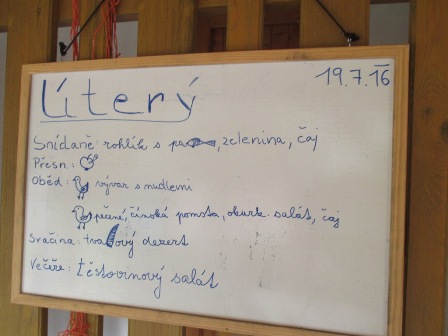 19.7.16
Úterý
Snídaně rohlík s pa, zelenina, čaj
Přesn.:
Oběd: vývar s nudlemi
pečené, čínská pomsta, okurk. salát, čaj
Svačina: tvarový dezert
Večeře: těstovinový salát